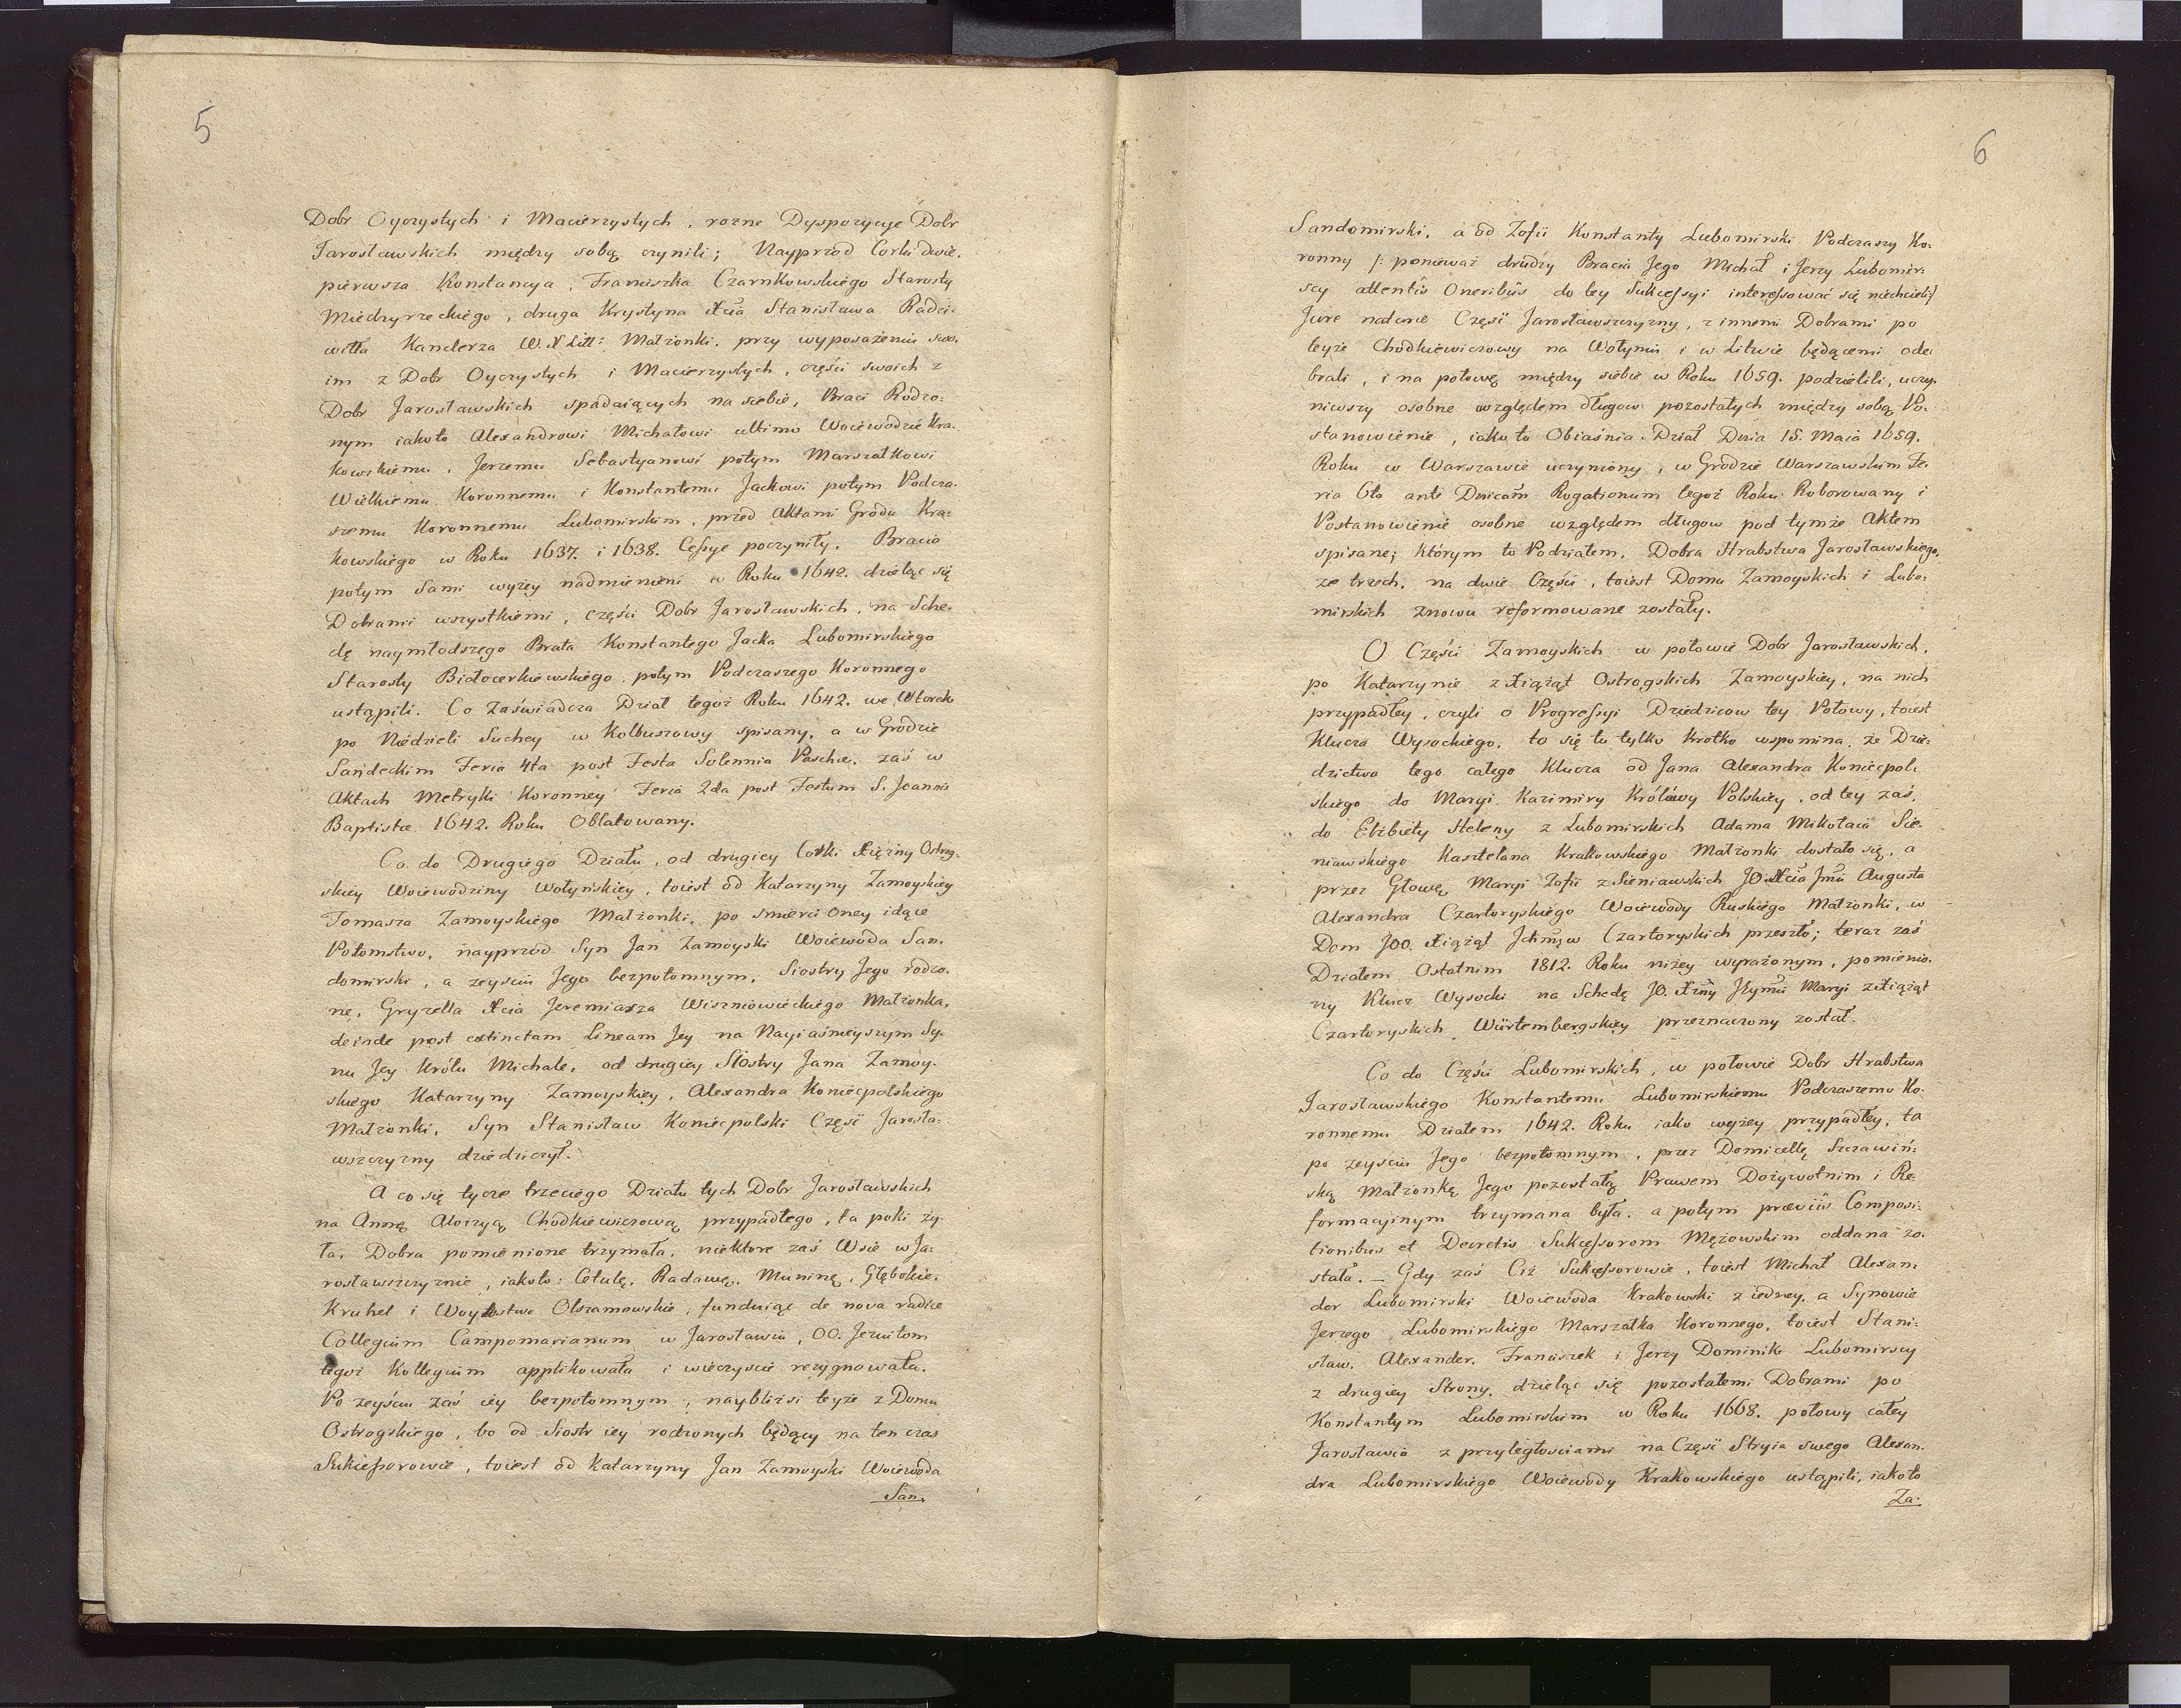 5
Dobr Oyczystych i Macierzystych, rozne Dyspozycye Dobr
Jarosławskich między sobą czynili; Nayprzód Corki dwie,
pierwsza Konstancya, Franciszka Czarnkowskiego Starosty
Międzyrzeckiego, druga Krystyna Xcia Stanisława Radzi-
wiłła Kanclerza W. X Litt: Małżonki, przy wyposażeniu swo-
im z Dobr Oyczystych i Macierzystych, części swoich z
Dobr Jarosławskich spadaiących na siebie, Braci Rodzo-
nym iakoto Alexandrowi Michałowi ultimo Woiewodzie Kra-
kowskiemu, Jerzemu Sebastyanowi potym Marszałkowi
Wielkiemu Koronnemu i Konstantemu Jackowi potym Podcza-
szemu Koronnemu Lubomirskim, przed Aktami Grodu Kra-
kowskiego w Roku 1637. i 1638. Cessye poczyniły. Bracia
potym Sami wyżey nadmienieni w Roku 1642. dzieląc się
Dobrami wszystkiemi, części Dobr Jarosławskich, na Sche-
dę naymłodszego Brata Konstantego Jacka Lubomirskiego
Starosty Białocerkiewskiego potym Podczaszego Koronnego
ustąpili. Co zaświadcza Dział tegoż Roku 1642. we Wtorek
po Niedzieli Suchey w Kolbuszowy spisany, a w Grodzie
Sandeckim Feria 4ta post Festa Solennia Paschæ, zaś w
Aktach Metryki Koronney Feria 2da post Festum S. Joannis
Baptistæ 1642. Roku Oblatowany.
Co do Drugiego Działu, od drugiey Corki Xiężny Ostrog-
skiey Woiewodziny Wołyńskiey, toiest od Katarzyny Zamoyskiey
Tomasza Zamoyskiego Małżonki, po smierci Oney idące
Potomstwo, nayprzod Syn Jan Zamoyski Woiewoda San-
domirski, a zeysciu Jego bezpotomnym, Siostry Jego rodzo-
ne, Gryzella Xcia Jeremiasza Wiszniowieckiego Małżonka,
deinde post extinctam Lineam Jey na Nayiaśnieyszym Sy-
nu Jey Królu Michale, od drugiey Siostry Jana Zamoy-
skiego Katarzyny Zamoyskiey, Alexandra Koniecpolskiego
Małżonki, Syn Stanisław Koniecpolski Część Jarosła-
wszczyzny dziedziczył.
A co się tycze trzeciego Działu tych Dobr Jarosławskich
na Annę Aloizyą Chodkiewiczową przypadłego, ta poki ży-
ła, Dobra pomienione trzymała, niektore zaś Wsie w Ja-
rosławszczyznie, iakoto: Cetulę, Radawę, Muninę, Głębokie,
Kruhel i Woytostwo Olszamowskie, funduiąc de nova radice
Collegium Campomarianum w Jarosławiu, OO. Jezuitom
tegoż Kollegium applikowała i wieczyscie rezygnowała.
Po zeyściu zaś iey bezpotomnym, nayblizsi teyże z Domu
Ostrogskiego, bo od Siostr iey rodzonych będący na ten czas
Sukcessorowie, toiest od Katarzyny Jan Zamoyski Woiewoda
San-
6
Sandomirski, a od Zofii Konstanty Lubomirski Podczaszy Ko-
ronny /: ponieważ drudzy Bracia Jego Michał i Jerzy Lubomir-
scy attentis Oneribus do tey Sukcessyi interessować się niechcieli :/
Jure naturæ Część Jarosławszczyzny, z innemi Dobrami po
teyże Chodkiewiczowy na Wołyniu i w Litwie będącemi ode-
brali, i na połowę między siebie w Roku 1659. podzielili, uczy-
niwszy osobne względem długow pozostałych między sobą Po-
stanowienie, iako to Obiaśnia Dział Dnia 15. Maia 1659.
Roku w Warszawie uczyniony, w Grodzie Warszawskim Fe-
ria 6to ante Dnicam Rogationum tegoż Roku Roborowany i
Postanowienie osobne względem długow pod tymże Aktem
spisane; którym to Podziałem, Dobra Hrabstwa Jarosławskiego,
ze trzech, na dwie Części, toiest Domu Zamoyskich i Lubo-
mirskich znowu reformowane zostały.
O Części Zamoyskich w połowie Dobr Jarosławskich,
po Katarzynie z Xiążąt Ostrogskich Zamoyskiey, na nich
przypadłey, czyli o Progressyi Dziedzicow tey Połowy, toiest
Klucza Wysockiego, to się tu tylko krotko wspomina, że Dzie-
dzictwo tego całego Klucza od Jana Alexandra Koniecpol-
skiego do Maryi Kazimiry Królowy Polskiey, od tey zaś,
do Elżbiety Heleny z Lubomirskich Adama Mikołaia Sie-
niawskiego Kasztelana Krakowskiego Małżonki dostało się, a
przez Głowę Maryi Zofii z Sieniawskich JO. Xcia Jmci Augusta
Alexandra Czartoryskiego Woiewody Ruskiego Małżonki, w
Dom JOO. Xiążąt Ichmciow Czartoryskich przeszło; teraz zaś
Działem Ostatnim 1812. Roku niżey wyrażonym, pomienio-
ny Klucz Wysocki na Schedę JO. Xżny Jeymci Maryi z Xiążąt
Czartoryskich Würtembergskiey przeznaczony został.
Co do Części Lubomirskich, w połowie Dobr Hrabstwa
Jarosławskiego Konstantemu Lubomirskiemu Podczaszemu Ko-
ronnemu Działem 1642. Roku iako wyżey przypadłey, ta
po zeysciu Jego bezpotomnym, przez Domicellę Szczawiń-
ską Małżonkę Jego pozostałą Prawem Dożywotnim i Re-
formacyinym trzymana była, a potym præviis Composi-
tionibus et Decretis Sukcessorom Mężowskim oddana zo-
stała. – Gdy zaś Ciż Sukcessorowie, toiest Michał Alexan-
der Lubomirski Woiewoda Krakowski z iedney, a Synowie
Jerzego Lubomirskiego Marszałka Koronnego, toiest Stani-
sław, Alexander, Franciszek i Jerzy Dominik Lubomirscy
z drugiey Strony, dzieląc się pozostałemi Dobrami po
Konstantym Lubomirskim w Roku 1668. połowy całey
Jarosławia z przyległosciami na Część Stryia swego Alexan-
dra Lubomirskiego Woiewody Krakowskiego ustąpili, iakoto
Za-